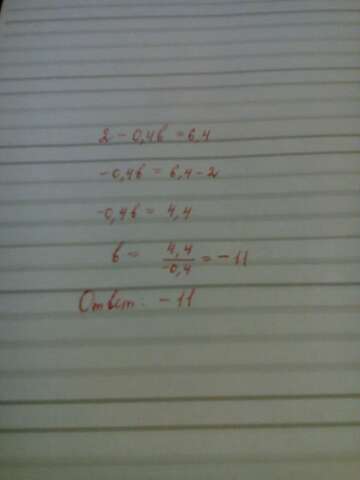 2 - 0,4в = 6,4
-0,4в = 6,4 - 2
-0,4в = 4,4
в = 4,4/-0,4 = -11
Ответ: -11